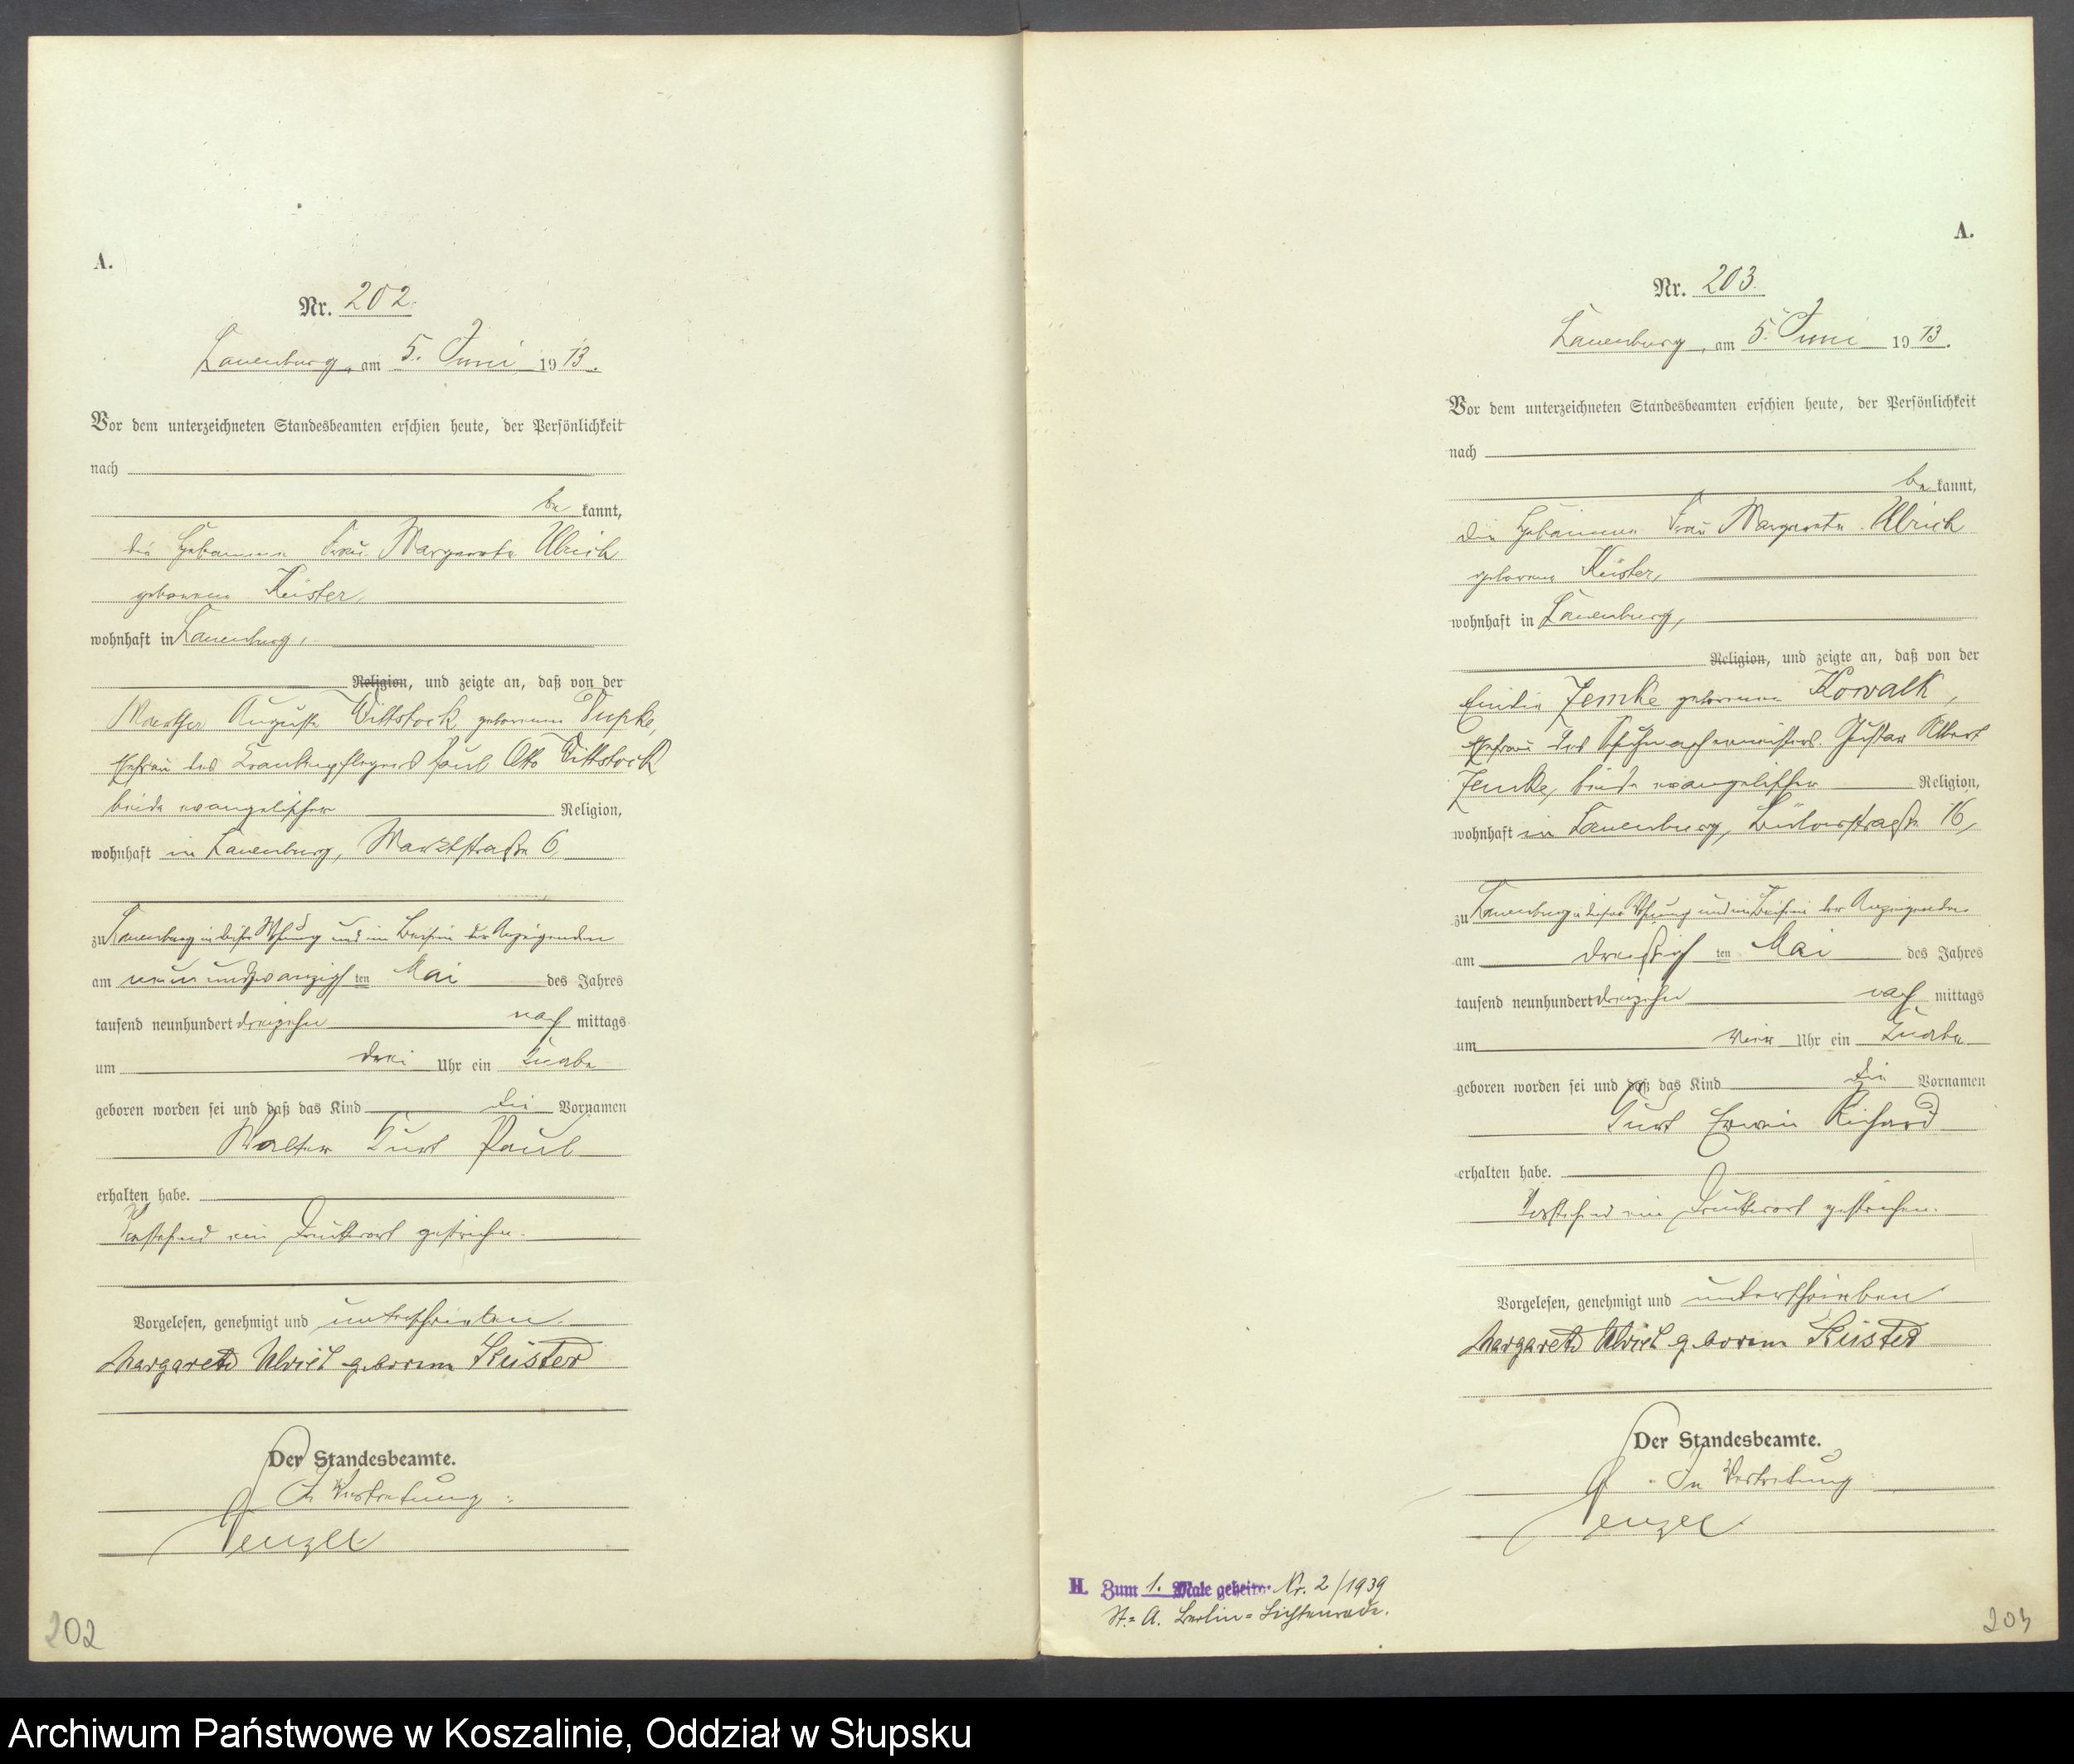 A.
Nr. 202.
Lauenburg, am 5. Juni 1913.
Vor dem unterzeichneten Standesbeamten erschien heute, der Persönlichkeit
nach
be kannt,
die Hebamme Frau Margarete Ulrich
geborene Küster,
wohnhaft in Lauenburg,
Religion, und zeigte an, daß von der
Martha Auguste Wittstock geborenen Dupke,
Ehefrau des Krankenpflegers Paul Otto Wittstock
beide evangelischer Religion,
wohnhaft in Lauenburg, Marktstraße 6,
zu Lauenburg in dieser Wohnung und im Beisein der Anzeigenden
am neunundzwanzigsten Mai des Jahres
tausend neunhundert dreizehn nach mittags
um drei Uhr ein Knabe
geboren worden sei und daß das Kind die Vornamen
Walter Kurt Paul
erhalten habe.
Vorstehend ein Druckwort gestrichen.
Vorgelesen, genehmigt und unterschrieben
Margarete Ulrich geborene Küster
Der Standesbeamte.
In Vertretung:
202
A.
Nr. 203.
Lauenburg, am 5. Juni 1913.
Vor dem unterzeichneten Standesbeamten erschien heute, der Persönlichkeit
nach
be kannt,
die Hebamme Frau Margarete Ulrich
geborene Küster,
wohnhaft in Lauenburg,
Religion, und zeigte an, daß von der
Emilie Jemke geborenen Kowalk,
Ehefrau des Schuhmachermeisters Gustav Albert
Jemke, beide evangelischer Religion,
wohnhaft in Lauenburg, Bülowstraße 16,
zu Lauenburg in dieser Wohnung und im Beisein der Anzeigenden
am dreißigsten Mai des Jahres
tausend neunhundert dreizehn nach mittags
um vier Uhr ein Knabe
geboren worden sei und daß das Kind die Vornamen
Kurt Erwin Richard
erhalten habe.
Vorstehend ein Druckwort gestrichen.
Vorgelesen, genehmigt und unterschrieben
Margarete Ulrich geborene Küster
Der Standesbeamte.
In Vertretung
H. Zum 1. Male geheir. Nr. 2/1939
St.=A. Berlin=Lichtenrade.
203
Archiwum Państwowe w Koszalinie, Oddział w Słupsku